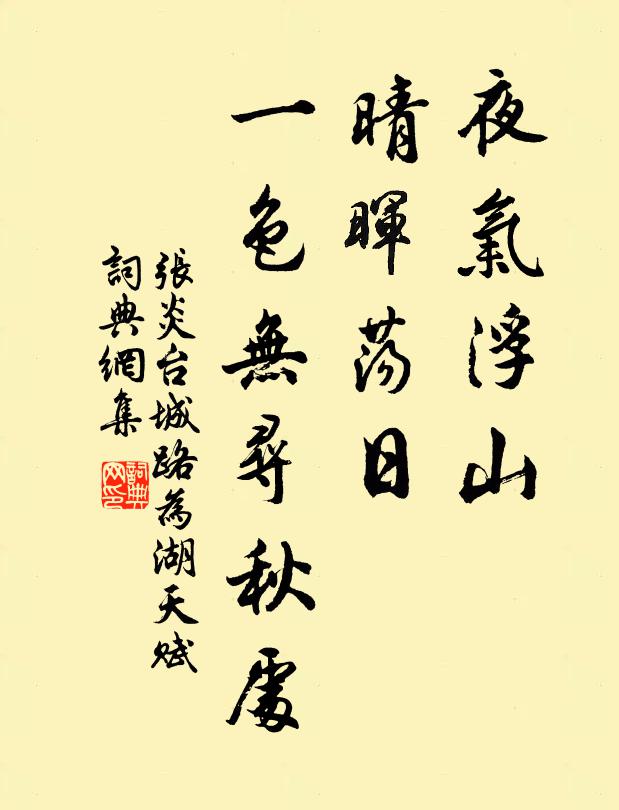 夜氣浮山
晴暉蕩日
一色無尋秋處
張炎台城路為湖天賦
詞典網集
詞典
网印